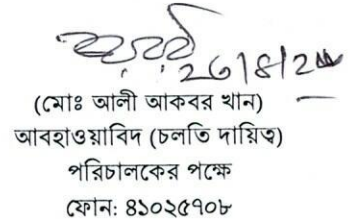 (মোঃ আলী আকবর খান)
আবহাওয়াবিদ (চলতি দায়িত্ব)
পরিচালকের পক্ষে
ফোন: ৪১০২৫৭০৮